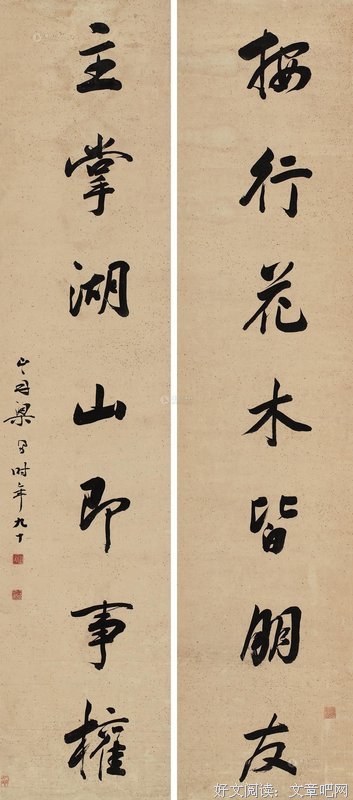 按行花木皆朋友
主掌湖山即事權
山舟梁同書時年九十
好文阅读：文章吧网